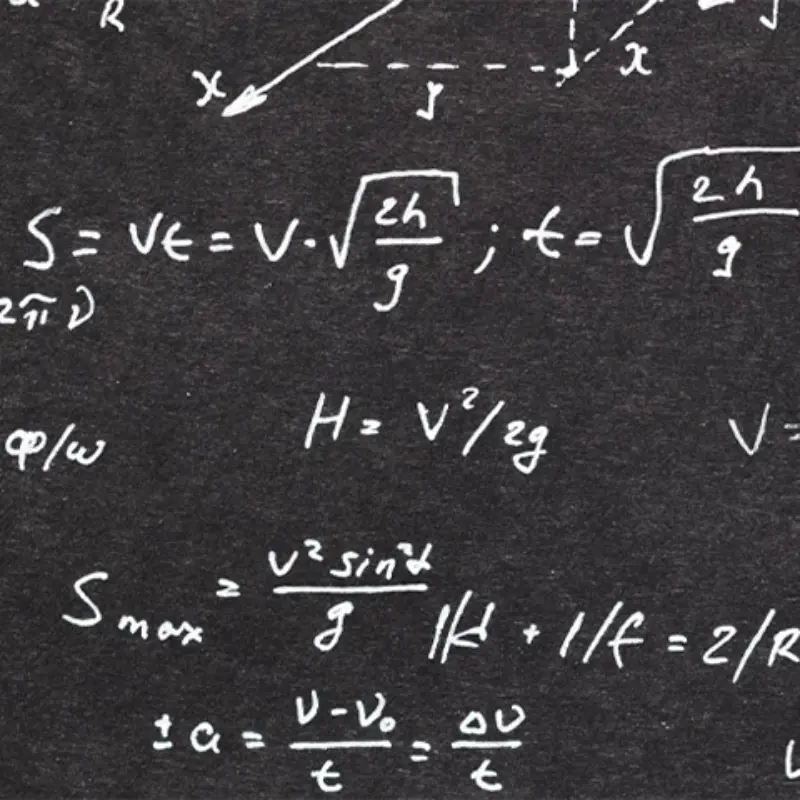 R
x y x
S = vt = v·√(2h/g) ; t = √(2h/g)
2πν
φ/ω H = V²/2g V =
S max = v² sin²α/g 1/d + 1/f = 2/R
± a = (v - v₀)/t = Δv/t